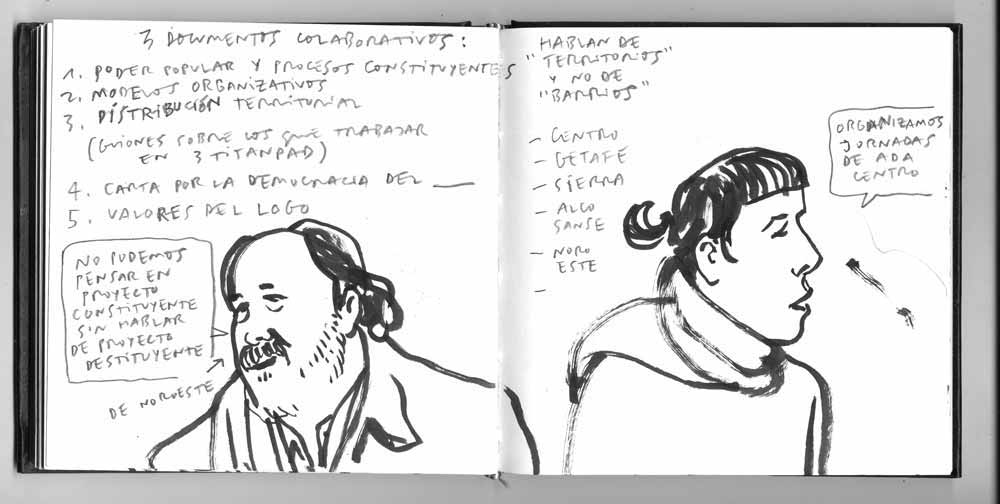 3 DOCUMENTOS COLABORATIVOS:
1. PODER POPULAR Y PROCESOS CONSTITUYENTES
2. MODELOS ORGANIZATIVOS
3. DISTRIBUCIÓN TERRITORIAL
(GUIONES SOBRE LOS QUE TRABAJAR
EN 3 TITANPAD)
4. CARTA POR LA DEMOCRACIA DEL ___
5. VALORES DEL LOGO
NO PODEMOS
PENSAR EN
PROYECTO
CONSTITUYENTE
SIN HABLAR
DE PROYECTO
DESTITUYENTE
DE NOROESTE
HABLAN DE
"TERRITORIOS"
Y NO DE
"BARRIOS"
- CENTRO
- GETAFE
- SIERRA
- ALCO
SANSE
- NORO
ESTE
-
ORGANIZAMOS
JORNADAS
DE ADA
CENTRO